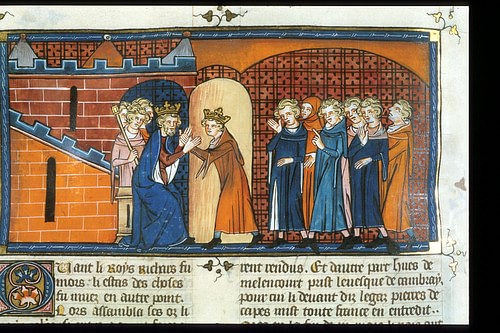 Quant li Roys Richars fu
mors. li estas des choses
fu muz en autre point.
Lors assambla ses oz li
rent rendus. Et dautre part hues de
melencourt prist levesque de cambray.
pour cui li devant dis legaz pierres de
capes mist toute france en entredit.